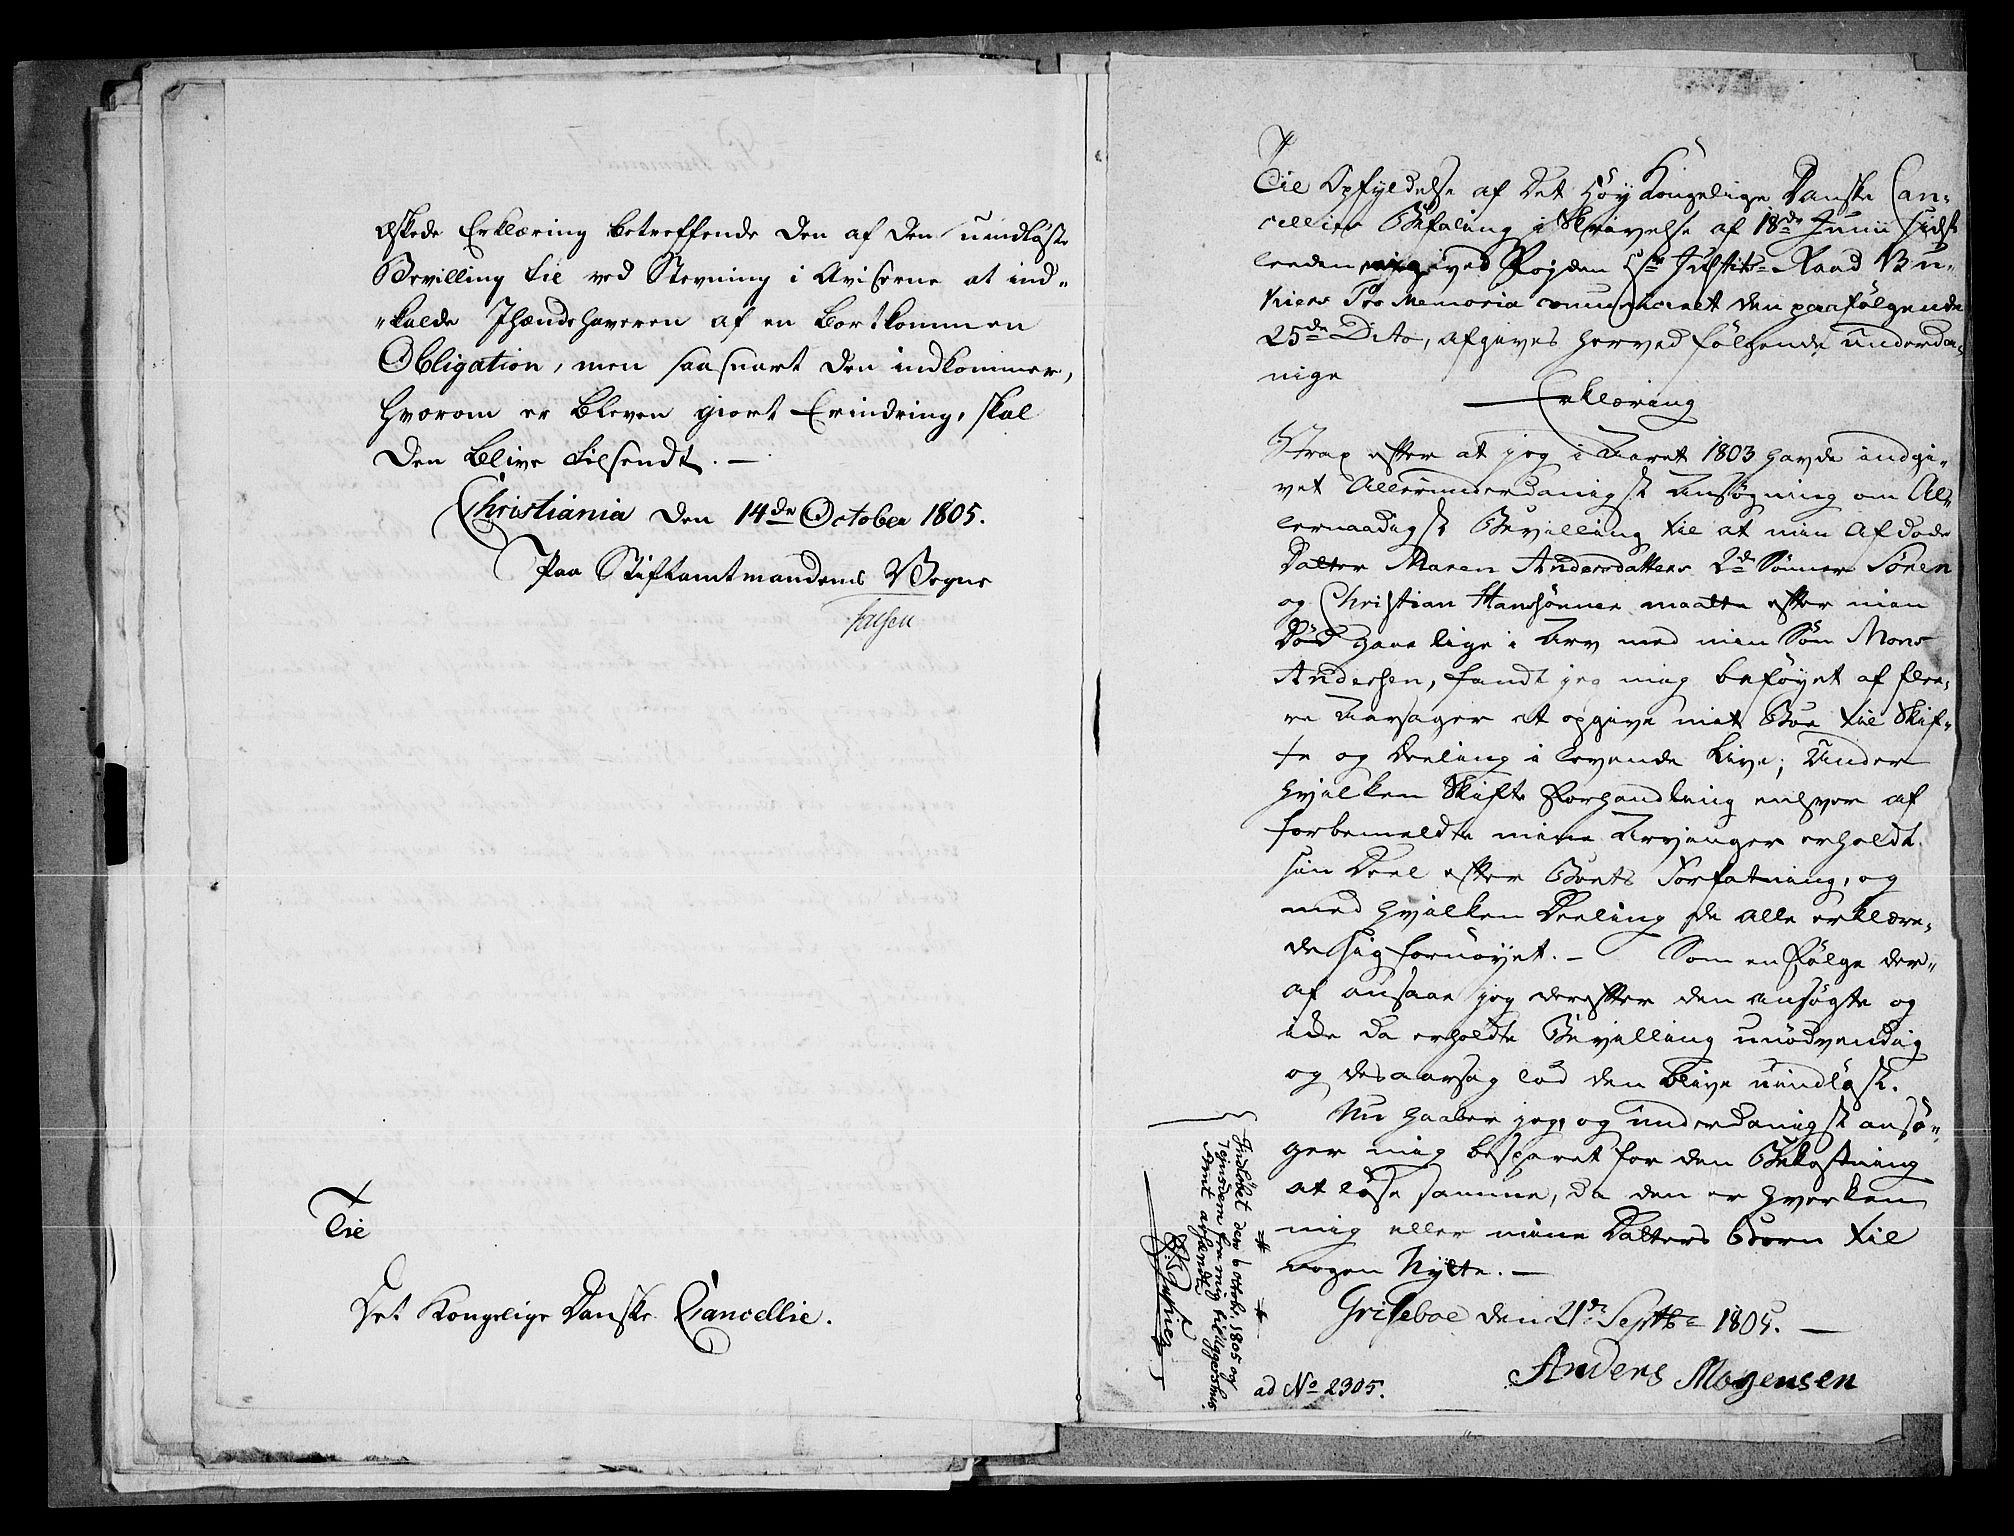 elskede Erklæring betreffende den af den uindløste
Bevilling til ved Stevning i Aviserne at ind-
-kalde Ihændehaveren af en bortkommen
Obligation, men saasnart den indkommer,
hvorom er bleven giort Erindring, skal
den blive tilsendt. —
Christiania den 14de October 1805.
Paa Stiftamtmandens Vegne
Falsen
Til
Det Kongelige Danske Cancellie.
Til Opfyldelse af Det Høy Kongelige Danske Can-
cellies Befaling i Skrivelse af 18de Junii sidst-
leeden ved Fogden Hr Justits-Raad
Pro Memoria communiceret den paafølgende
25de Dito, afgives herved følgende underda-
nige
Erklæring
Strax efter at jeg i Aaret 1803 havde indgi-
vet Allerunderdanigst Ansøgning om Al-
lernaadigst Bevilling til at min Afdøde
Datter Maren Andersdatters 2de Sønner Søren
og Christian Hanssønner maatte efter min
Død gaae lige i Arv med min Søn Mons
Andersen, fandt jeg mig beføyet af flee-
re Aarsager at opgive mit Boe til Skif-
te og Deeling i levende Live; Under
hvilken Skifte Forhandling enhver af
forbemeldte mine Arvinger erholdt
sin Deel efter Boets Forfatning, og
med hvilken Deeling de alle erklære-
de sig fornøyet. — Som en Følge der-
af ansaae jeg derefter den ansøgte og
ide da erholdte Bevilling unødvendig
og desaarsag lod den blive uindløst.
Nu haaber jeg, og underdanigst ansø-
ger mig besparet for den Bekostning
at løse samme, da den er hverken
mig eller mine Datters Børn til
nogen Nytte. —
Griseboe den 21de Septbr 1805. —
Anders Mogensen
ad No 2305.
Indløbet den 6 octob. 1805 og
fra mig til Aggershus
Amt afsendt